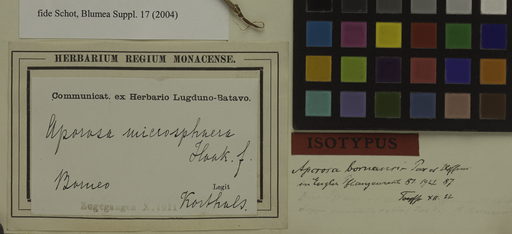 fide Schot, Blumea Suppl. 17 (2004)
HERBARIUM REGIUM MONACENSE.
Communicat. ex Herbario Lugduno-Batavo.
Aporosa microsphaera
Hook. f.
Borneo
Legit
Korthals.
ISOTYPUS
Aporosa borneensis Pax et Hoffm
in Engler Pflanzenreich 81. 1922 87